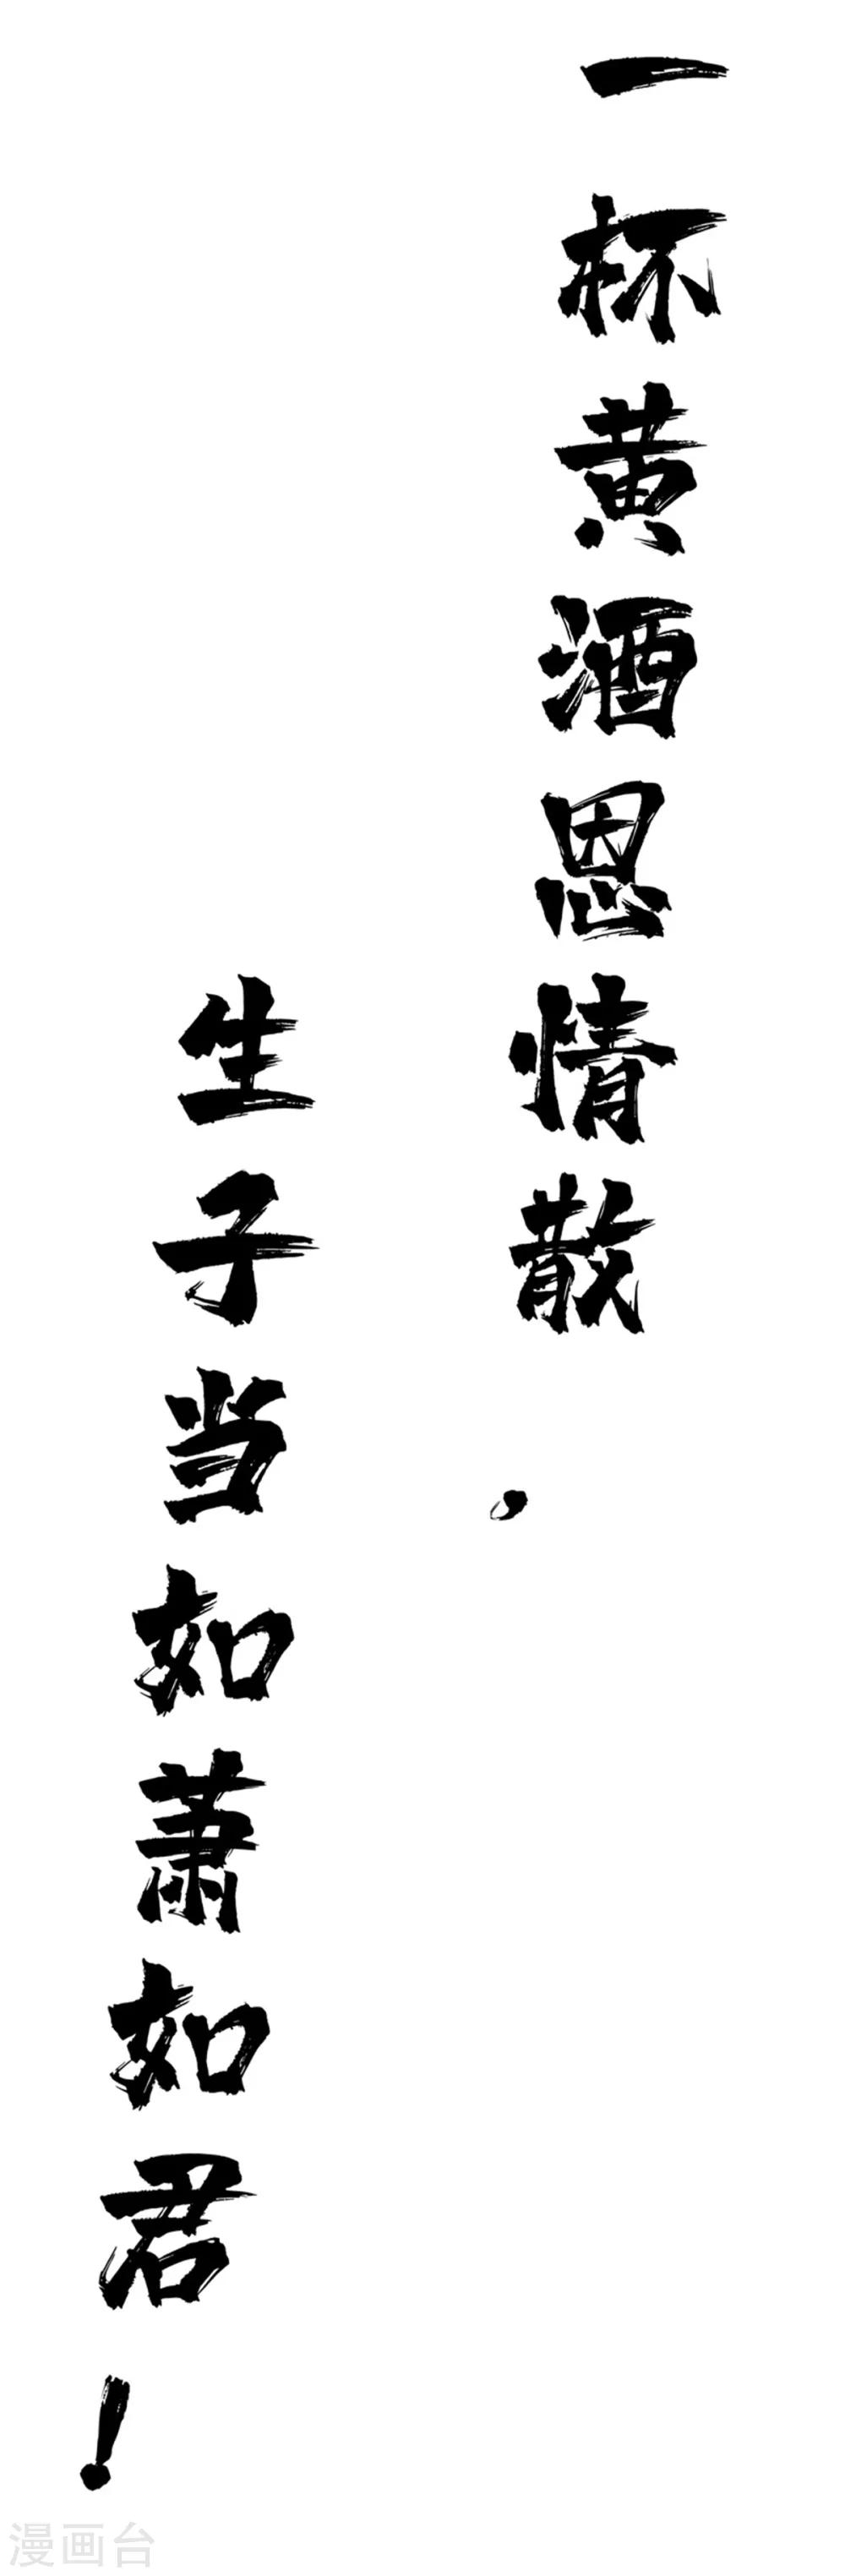 一杯黄酒恩情散，
生子当如萧如君！
漫画台